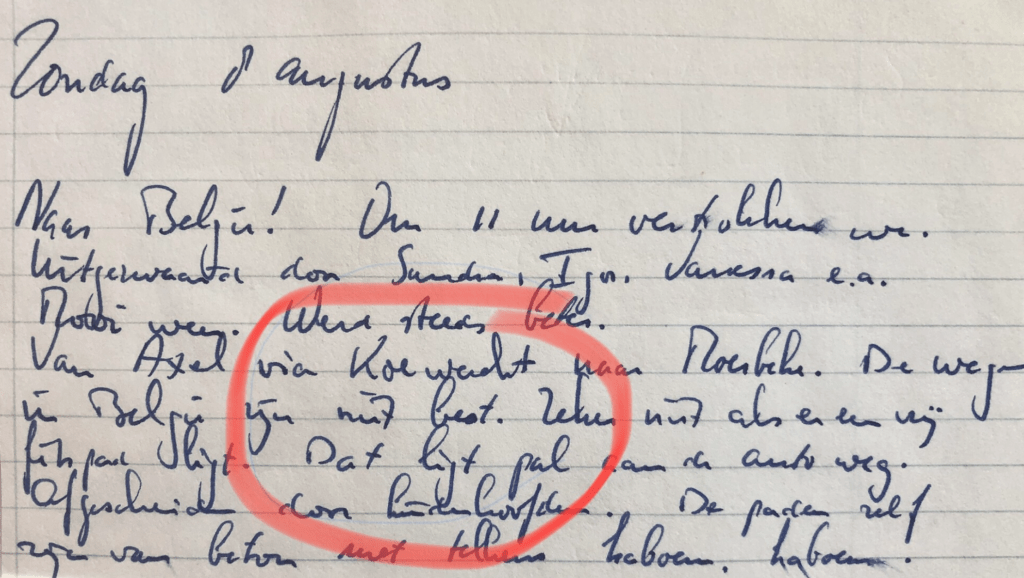 Zondag 8 augustus
Naar België! Om 11 uur vertrokken we.
Uitgezwaaid door Sandra, Igor, Vanessa e.a.
Mooi weer. Werd steeds beter.
Van Axel via Koewacht naar Moerbeke. De wegen
in België zijn niet best. Zeker niet als er een vrij
fietspad ligt. Dat ligt pal aan de autoweg.
Afgescheiden door kinderhoofden. De paden zelf
zijn van beton met telkens kaboem, kaboem!